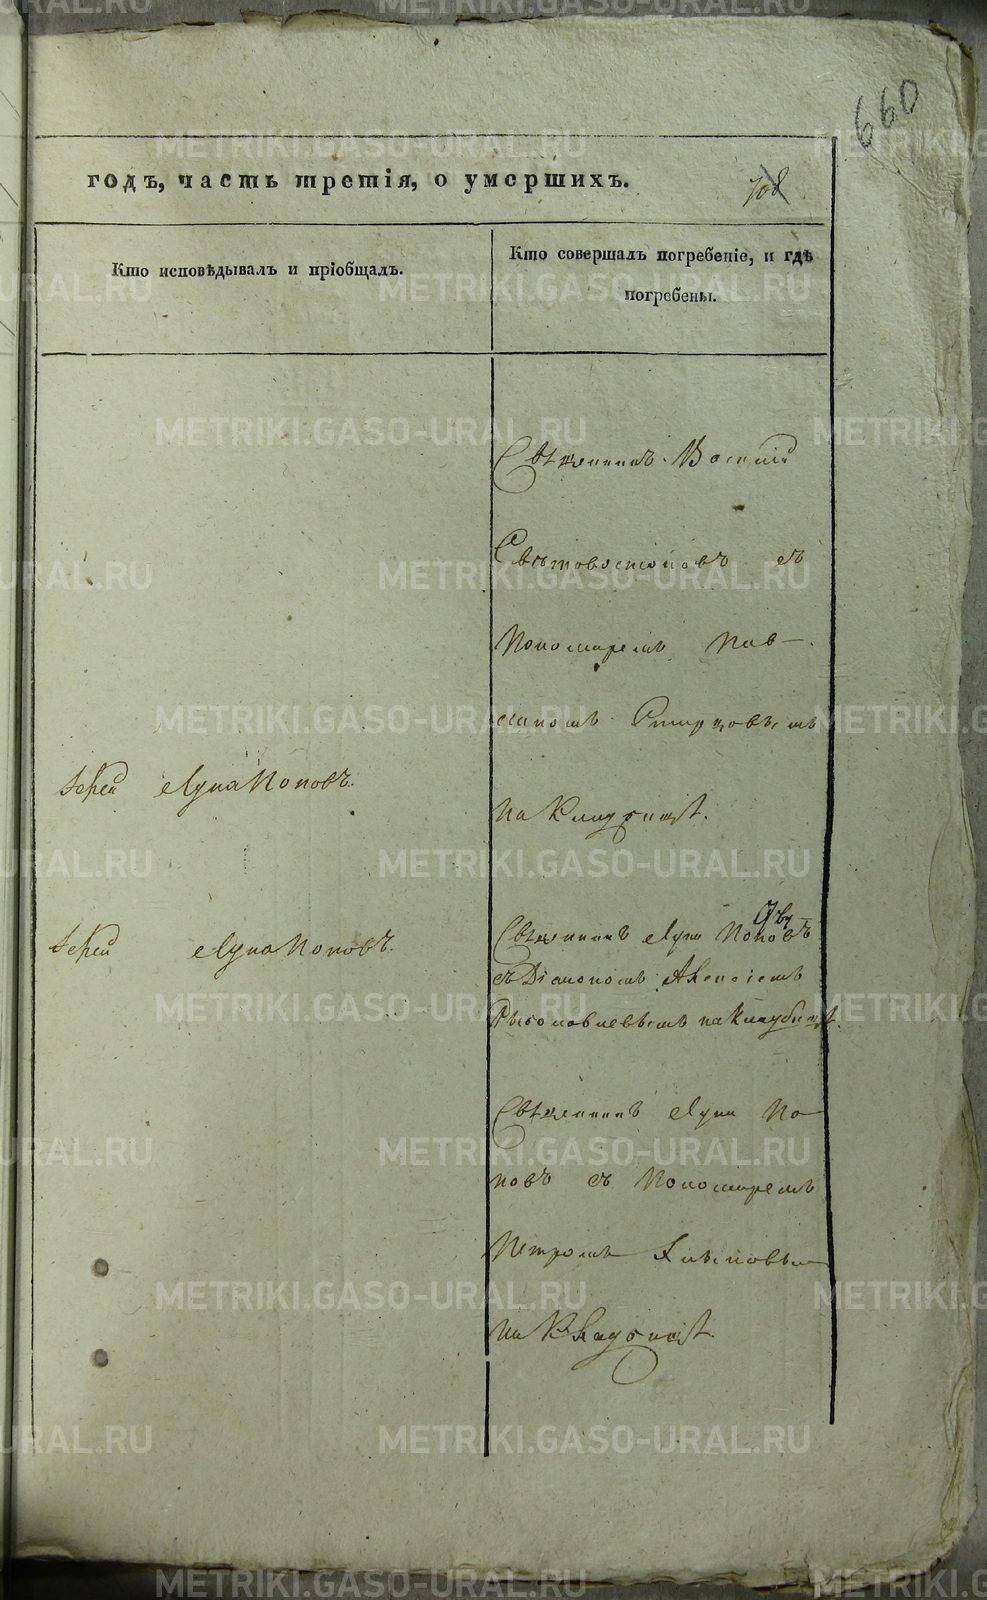 660
годъ, часть третія, о умершихъ.
708
Кто исповѣдывалъ и пріобщалъ.
Кто совершалъ погребеніе, и гдѣ
погребены.
Священникъ Василій
съ
Пономаремъ Пав-
Смирновымъ
на Кладбищѣ.
Іерей Лука Поповъ.
Іерей Лука Поповъ.
Священникъ Лука Поповъ
съ Діакономъ Алексіемъ
на Кладбищѣ.
Священникъ Лука По-
повъ съ Пономаремъ
Петромъ
на Кладбищѣ.
METRIKI.GASO-URAL.RU